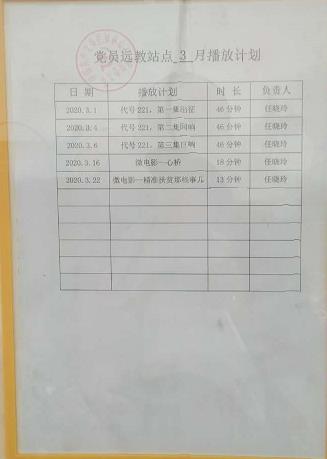 党员远教站点 3 月播放计划
日 期 播放计划 时 长 负责人
2020.3.1 代号221，第一集出征 46分钟 任晓玲
2020.3.4 代号221，第二集回响 46分钟 任晓玲
2020.3.6 代号221，第三集巨响 46分钟 任晓玲
2020.3.16 微电影—心桥 18分钟 任晓玲
2020.3.22 微电影—精准扶贫那些事儿 13分钟 任晓玲